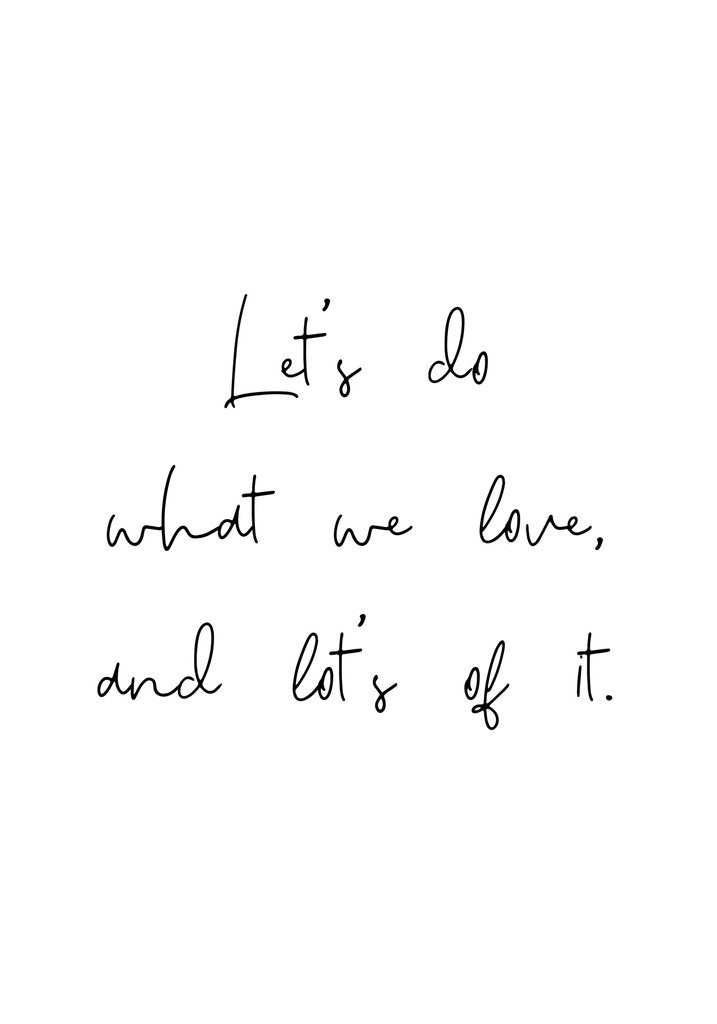 Let's do
what we love,
and lot's of it.